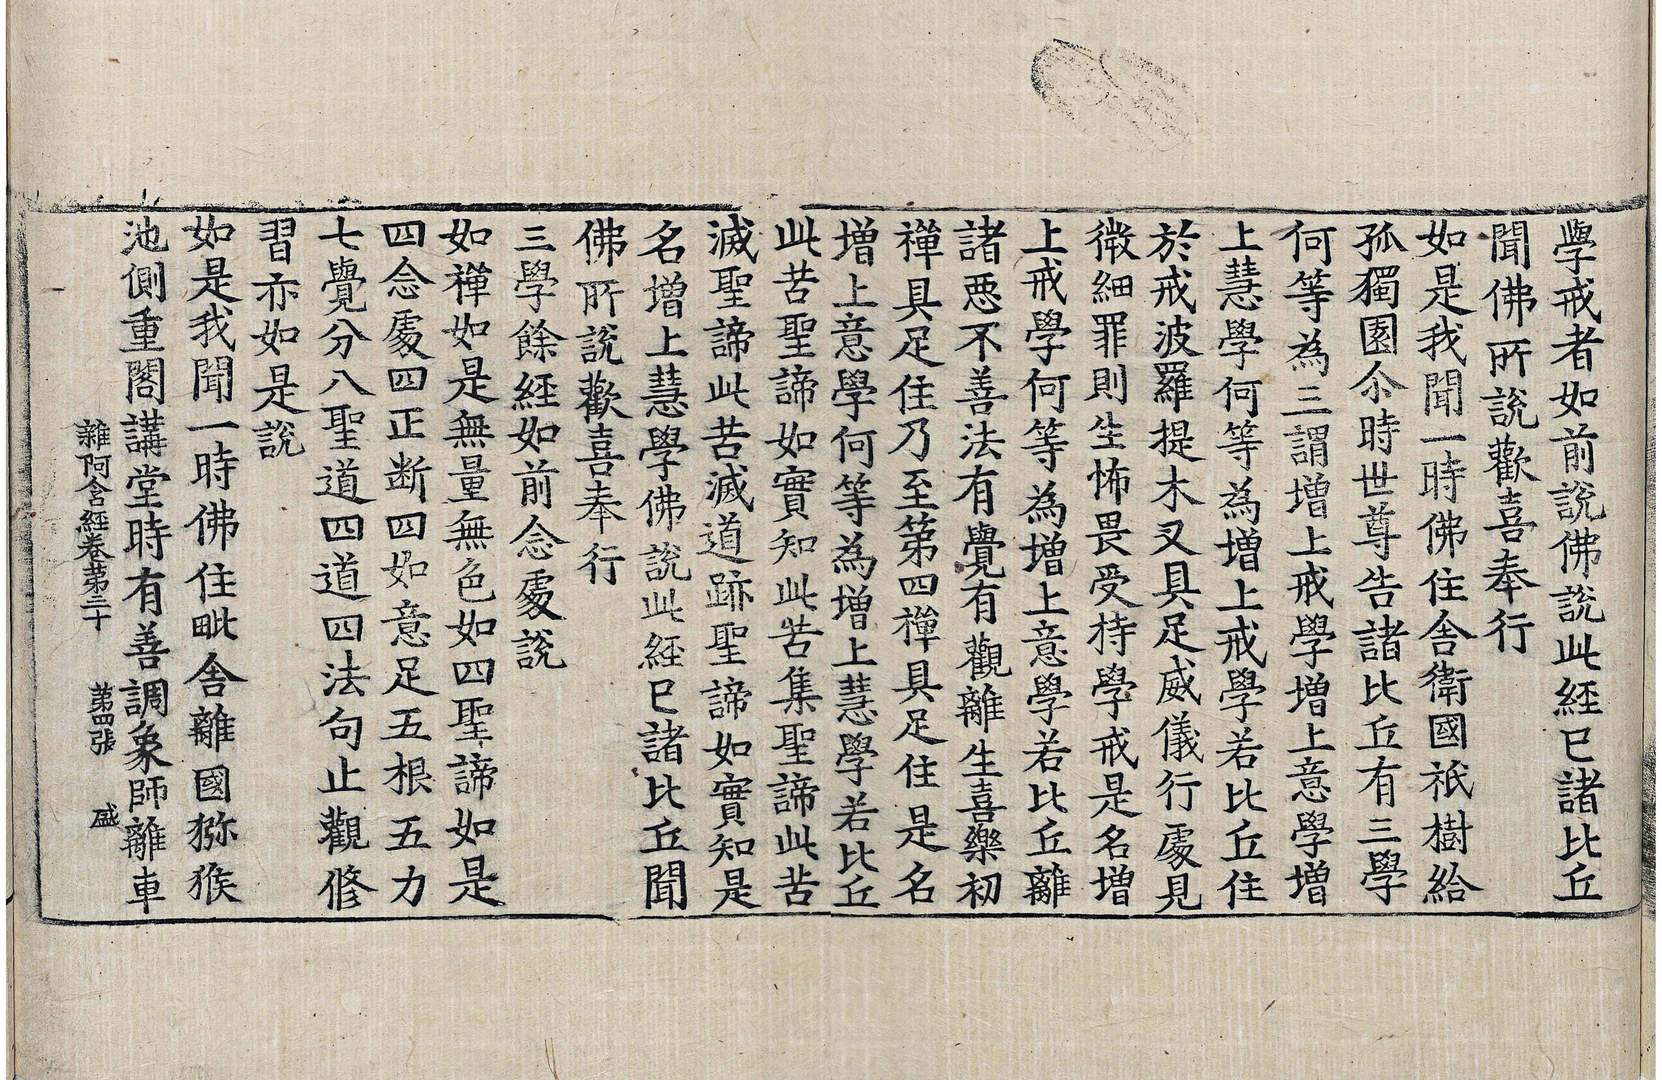 學戒者如前說佛說此經已諸比丘
聞佛所說歡喜奉行
如是我聞一時佛住舍衛國祇樹給
孤獨園尒時世尊告諸比丘有三學
何等為三謂增上戒學增上意學增
上慧學何等為增上戒學若比丘住
於戒波羅提木叉具足威儀行處見
微細罪則生怖畏受持學戒是名增
上戒學何等為增上意學若比丘離
諸惡不善法有覺有觀離生喜樂初
禪具足住乃至第四禪具足住是名
增上意學何等為增上慧學若比丘
此苦聖諦如實知此苦集聖諦此苦
滅聖諦此苦滅道跡聖諦如實知是
名增上慧學佛說此經已諸比丘聞
佛所說歡喜奉行
三學餘經如前念處說
如禪如是無量無色如四聖諦如是
四念處四正断四如意足五根五力
七覺分八聖道四道四法句止觀修
習亦如是說
如是我聞一時佛住毗舍離國獼猴
池側重閣講堂時有善調象師離車
雜阿含經卷第三十 第四張 盛